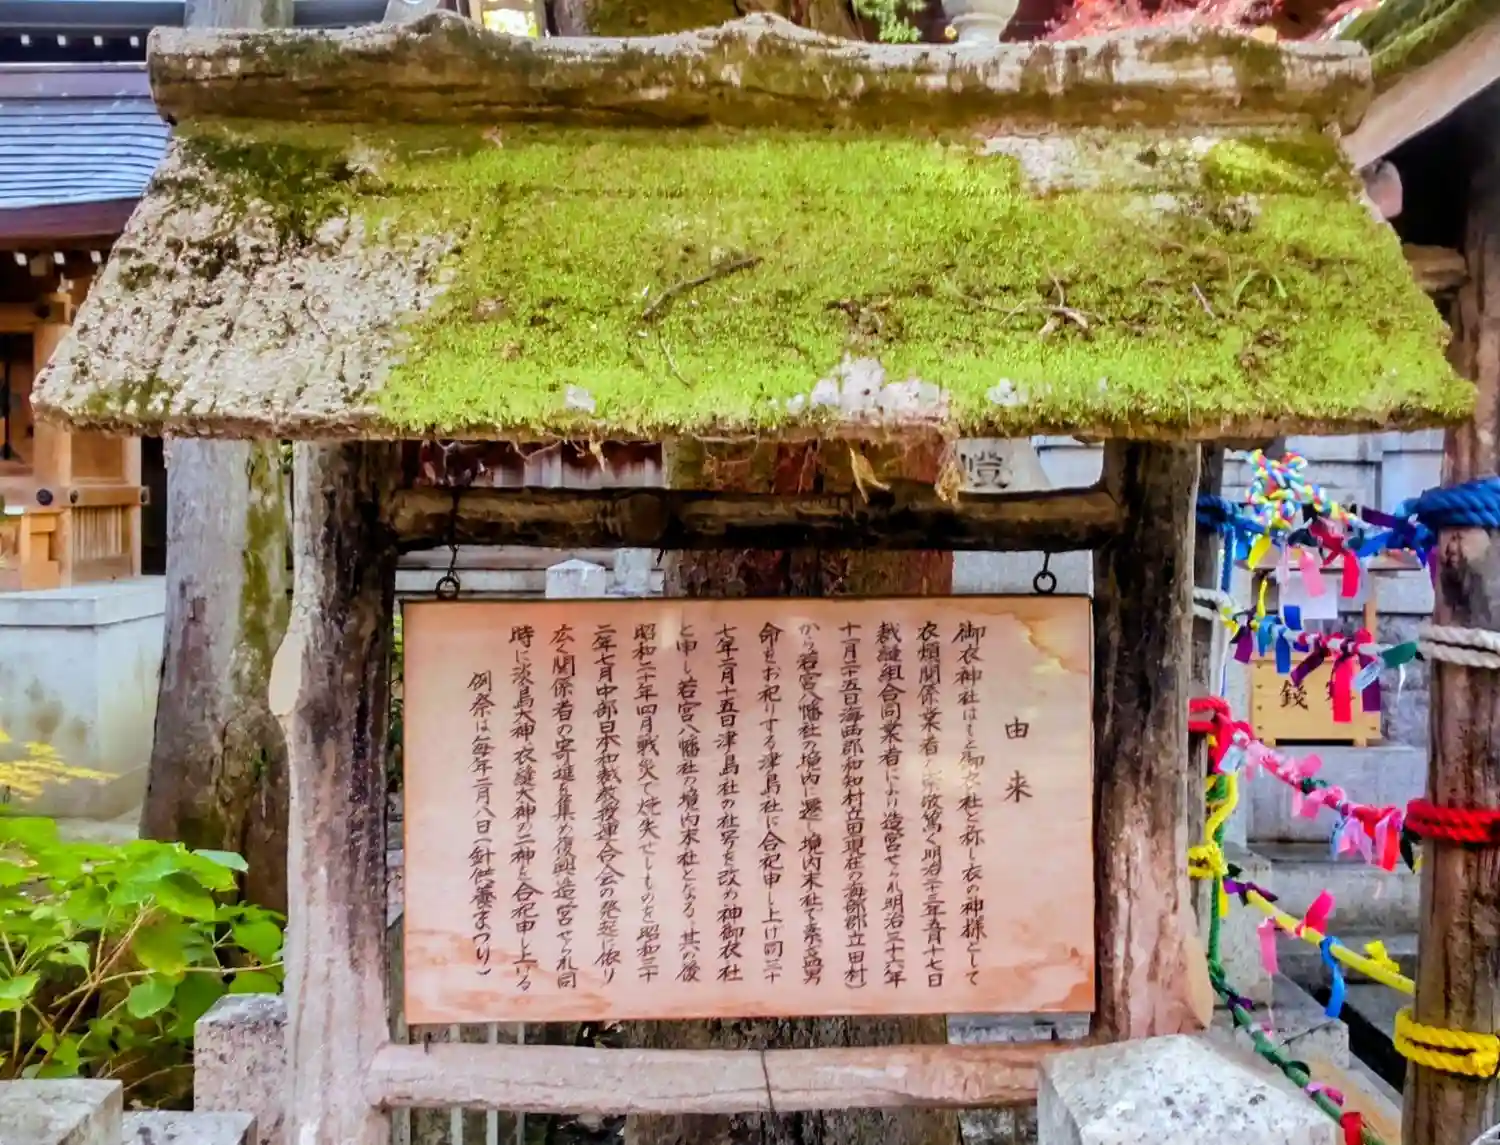 由来
御衣神社はもと御衣社と称し衣の神様として
衣類関係業者の崇敬篤く明治二十三年五月十七日
裁縫組合同業者により造営せられ明治三十六年
十一月二十五日海西郡和知村立田現在の海部郡立田村)
から若宮八幡社の境内に遷し境内末社て素盞男
命をお祀りする津島社に合祀申し上げ同三十
七年二月十五日津島社の社号を改め神御衣社
と申し若宮八幡社の境内末社となる其の後
昭和二十年四月戦災で焼失せしものを昭和三十
二年七月中部日本和裁教授連合会の発起に依り
広く関係者の寄進を集め復興造営せられ同
時に淡島大神衣縫大神の二神を合祀申し上げる
例祭は毎年二月八日(針供養まつり)
銭